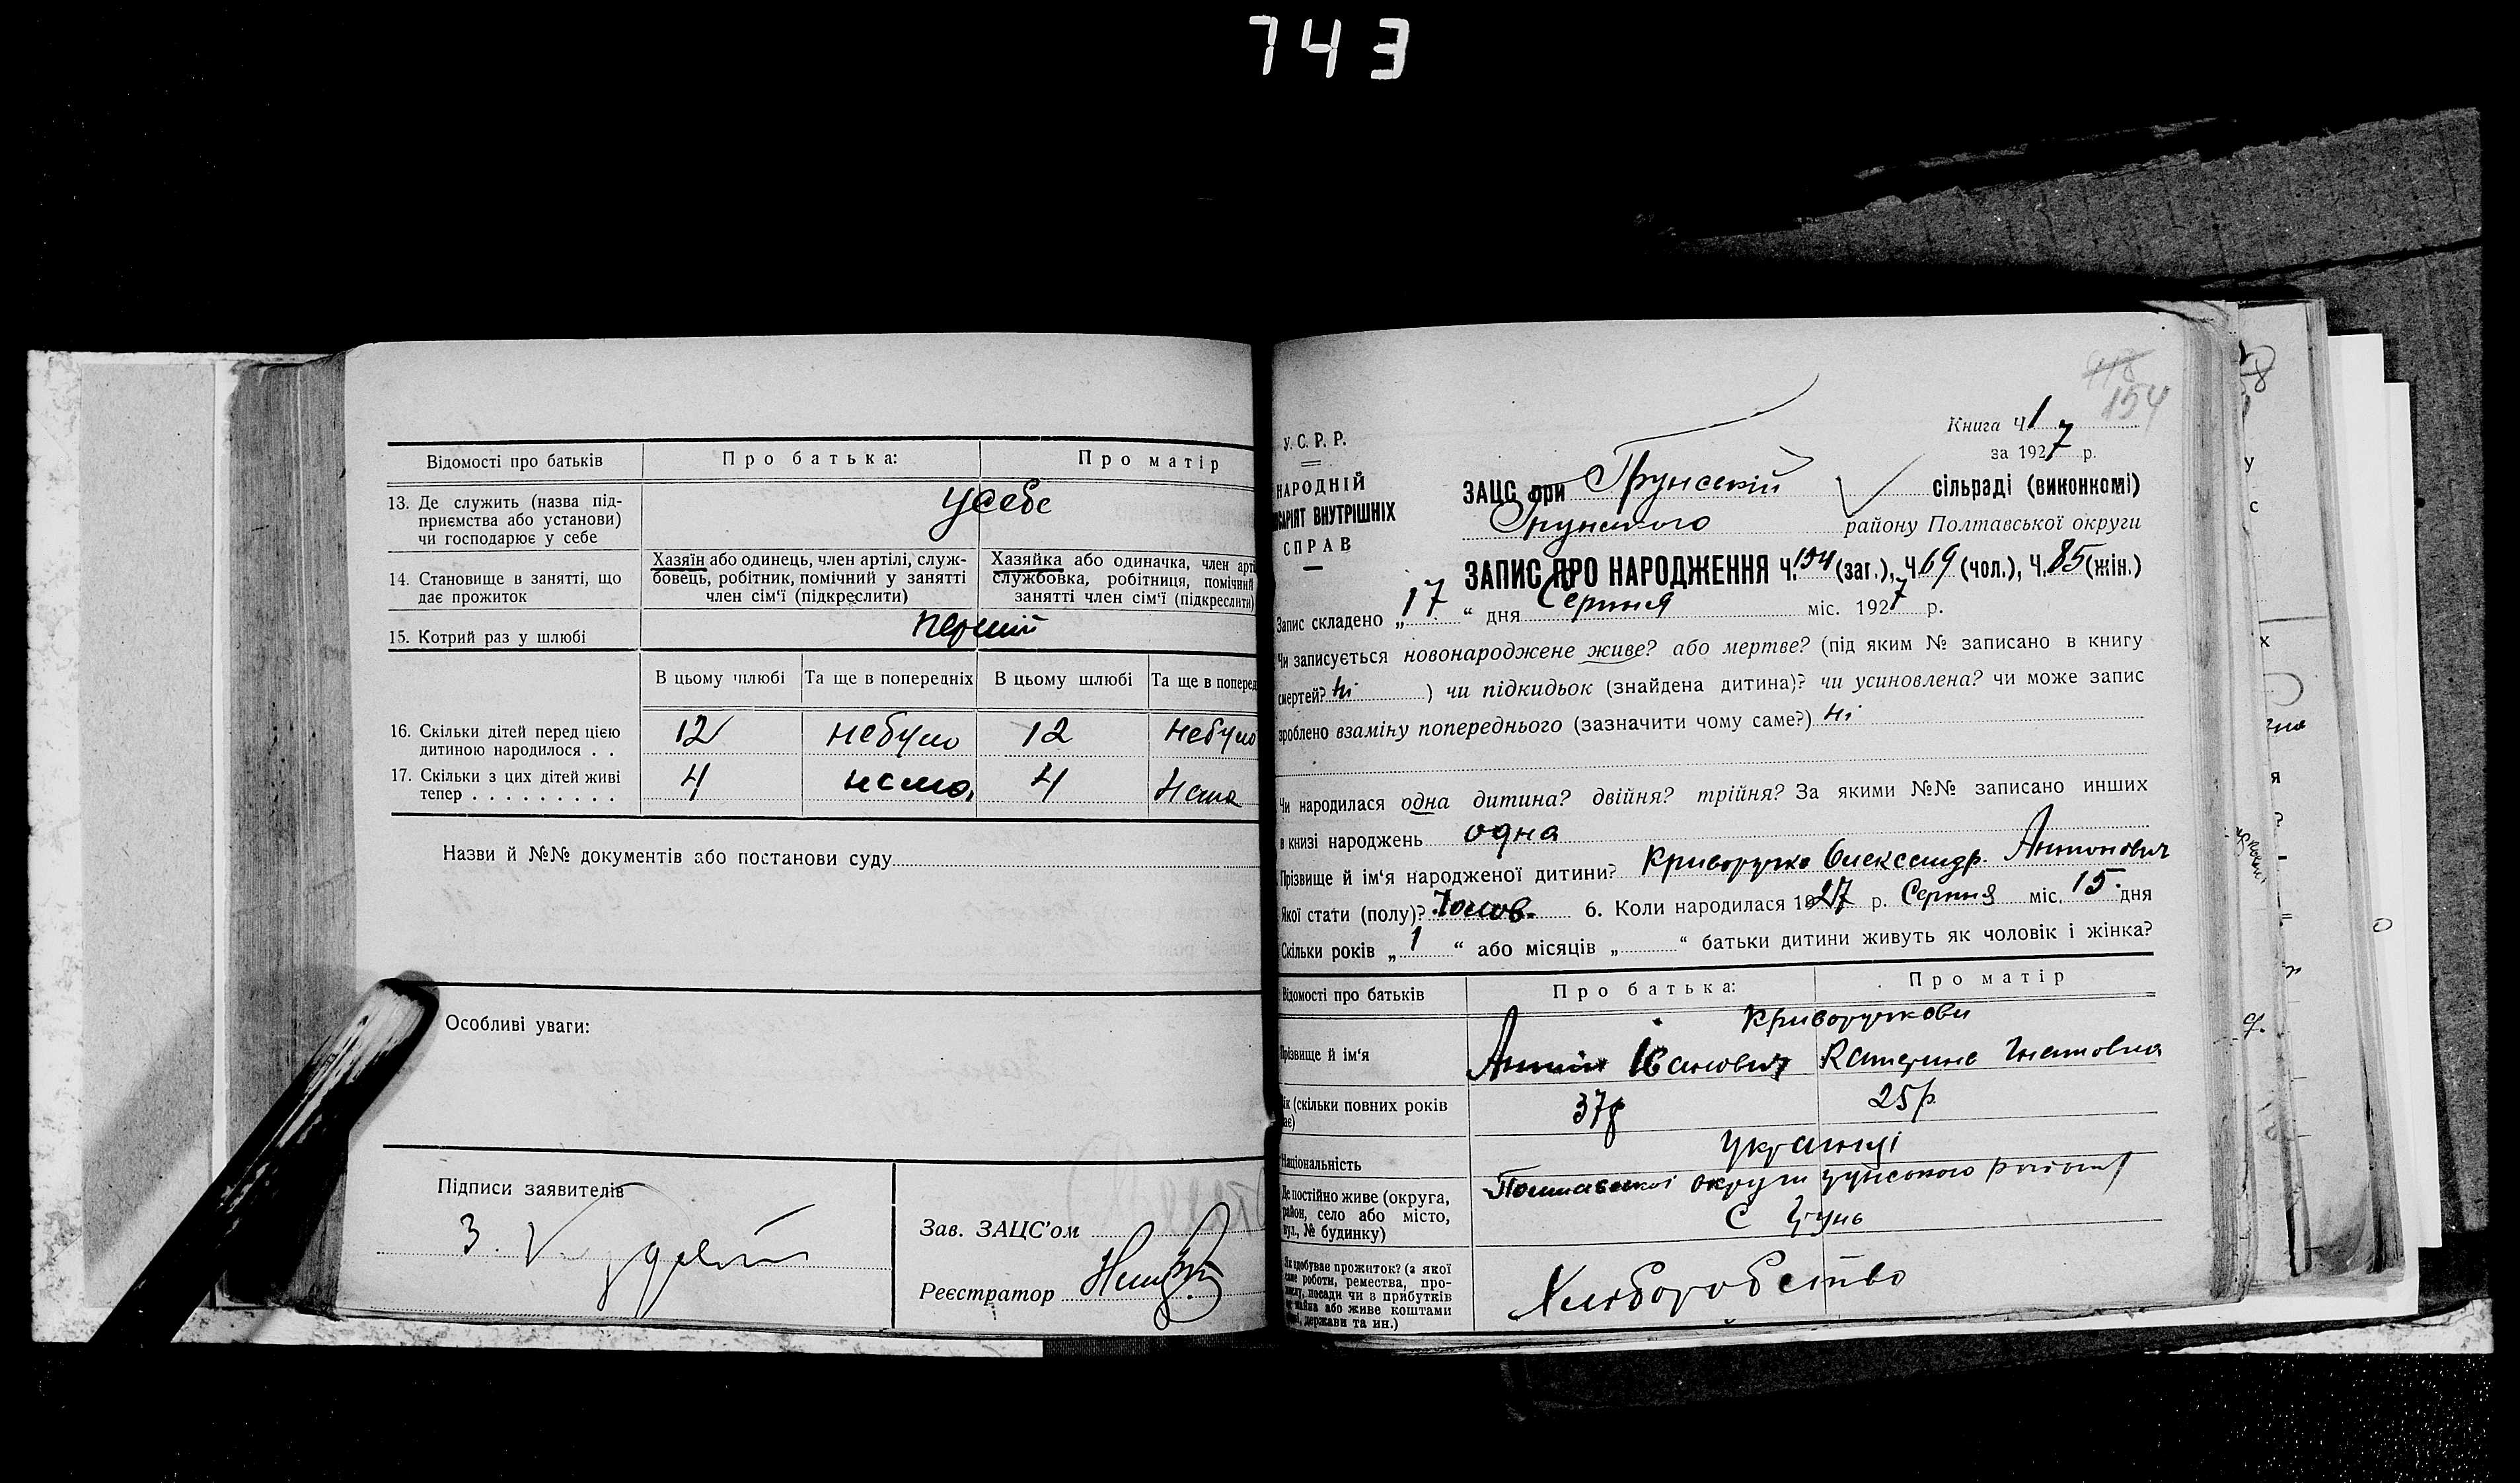 743
Відомості про батьків
Про батька:
Про матір
13. Де служить (назва під-
приємства або установи)
чи господарює у себе
усебе
14. Становище в занятті, що
дає прожиток
Хазяїн або одинець, член артілі, служ-
бовець, робітник, помічний у занятті
член сім'ї (підкреслити)
Хазяйка або одиначка, член арті
службовка, робітниця, помічний
занятті член сім'ї (підкреслити)
15. Котрий раз у шлюбі
перший
В цьому шлюбі
Та ще в попередніх
В цьому шлюбі
Та ще в поперед
16. Скільки дітей перед цією
дитиною народилося . .
12 небуло 12 небуло
17. Скільки з цих дітей живі
тепер . . . . . . . . .
4 нема 4 нема
Назви й №№ документів або постанови суду
Особливі уваги:
Підписи заявителів
З.
Зав. ЗАЦС'ом
Реєстратор
118
154
Книга Ч 1
за 1927 р.
У.С.Р.Р.
НАРОДНІЙ
САРІЯТ ВНУТРІШНІХ
СПРАВ
ЗАЦС при Грунській сільраді (виконкомі)
Грунського району Полтавської округи
ЗАПИС ПРО НАРОДЖЕННЯ Ч. 154 (заг.), Ч. 69 (чол.), Ч. 85 (жін.)
Запис складено „17“ дня Серпня міс. 1927 р.
Чи записується новонароджене живе? або мертве? (під яким № записано в книгу
смертей? ні ) чи підкидьок (знайдена дитина)? чи усиновлена? чи може запис
зроблено взаміну попереднього (зазначити чому саме?) ні
Чи народилася одна дитина? двійня? трійня? За якими №№ записано инших
в книзі народжень одна
Прізвище й ім'я народженої дитини? Криворучко Олександр Антонович
Якої стати (полу)? 6. Коли народилася 1927 р. Серпня міс. 15 дня
Скільки років „1“ або місяців „ “ батьки дитини живуть як чоловік і жінка?
Відомості про батьків
Про батька:
Про матір
Криворучкови
Прізвище й ім'я
Антін Іванович
Катерина Гнатовна
ік (скільки повних років
ає)
37р
25р.
Національність
Українці
Де постійно живе (округа,
район, село або місто,
вул., № будинку)
Полтавської округи грунського району
С Грунь
Як здобуває прожиток? (з якої
саме роботи, ремества, про-
мислу, посади чи з прибутків
майна або живе коштами
держави та ин.)
Хліборобство